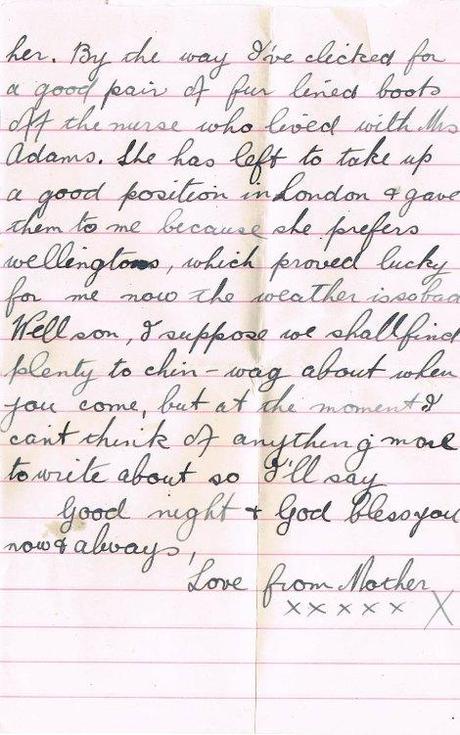 her. By the way I've clicked for
a good pair of fur lined boots
off the nurse who lived with Mrs
Adams. She has left to take up
a good position in London & gave
them to me because she prefers
wellingtons, which proved lucky
for me now the weather is so bad
Well son, I suppose we shall find
plenty to chin-wag about when
you come, but at the moment I
can't think of anything more
to write about so I'll say
Good night & God bless you
now & always,
Love from Mother
xxxxx X